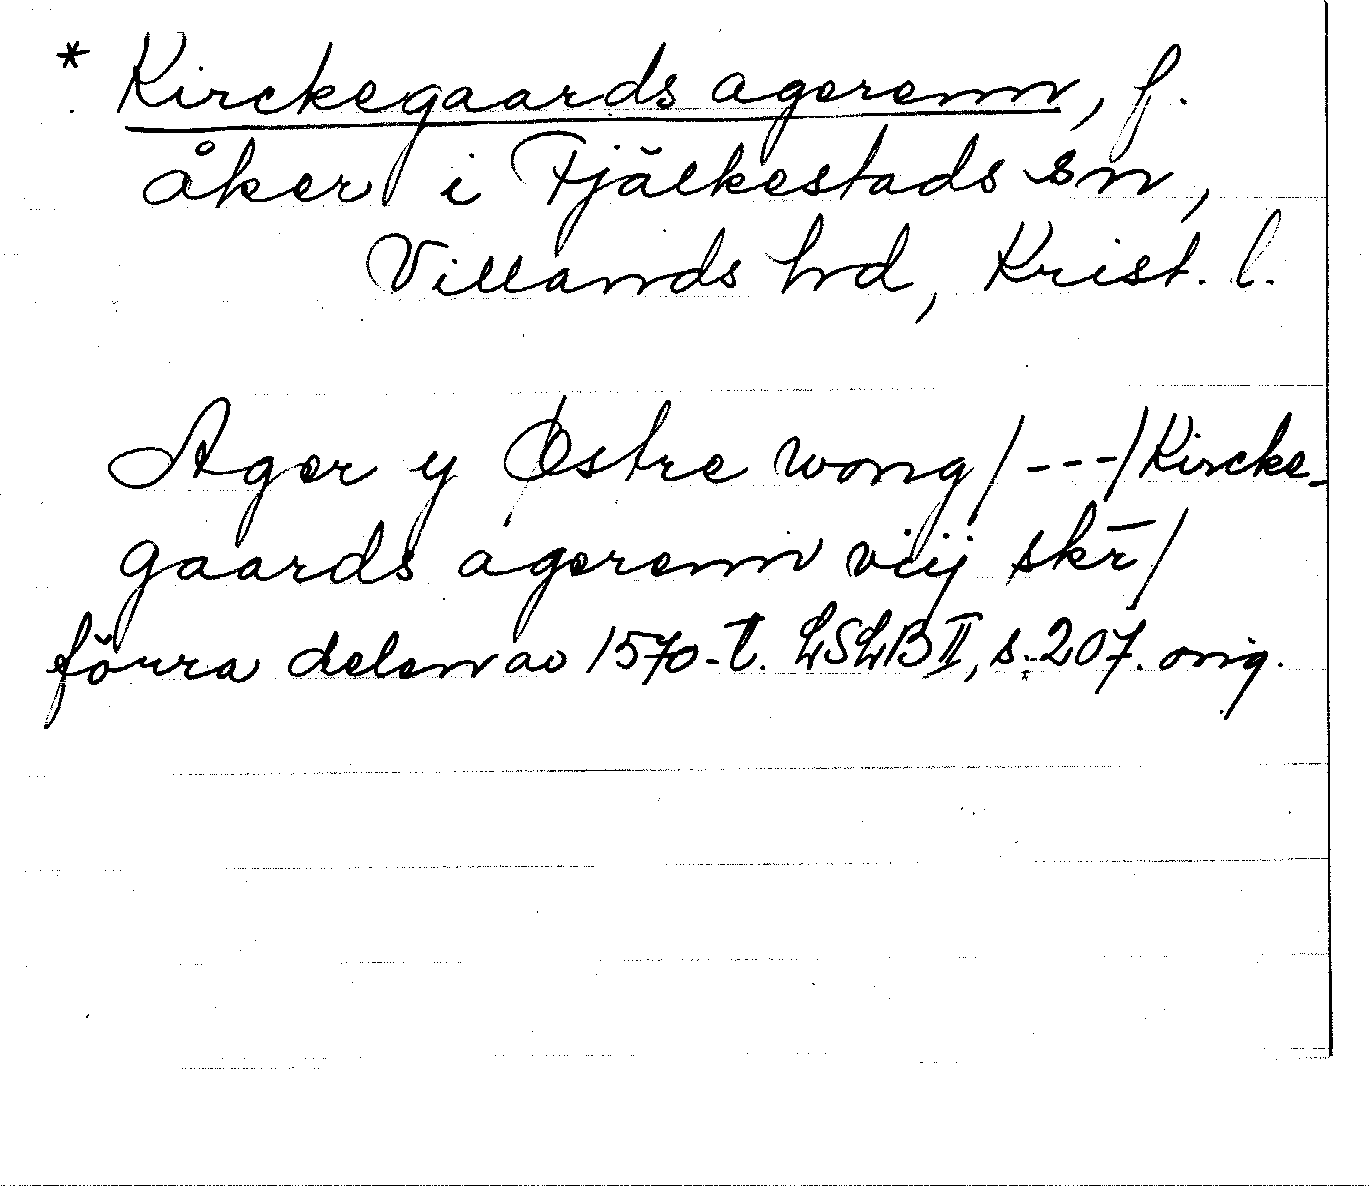 * Kirckegaards agerenn, f.
åker i Fjälkestads sn,
Villands hd, Krist. l.
Ager y Østre wong / --- / Kircke-
gaards agerenn viij skr̄ /
förra delen av 1570-t. LSLB II, s. 207. orig.